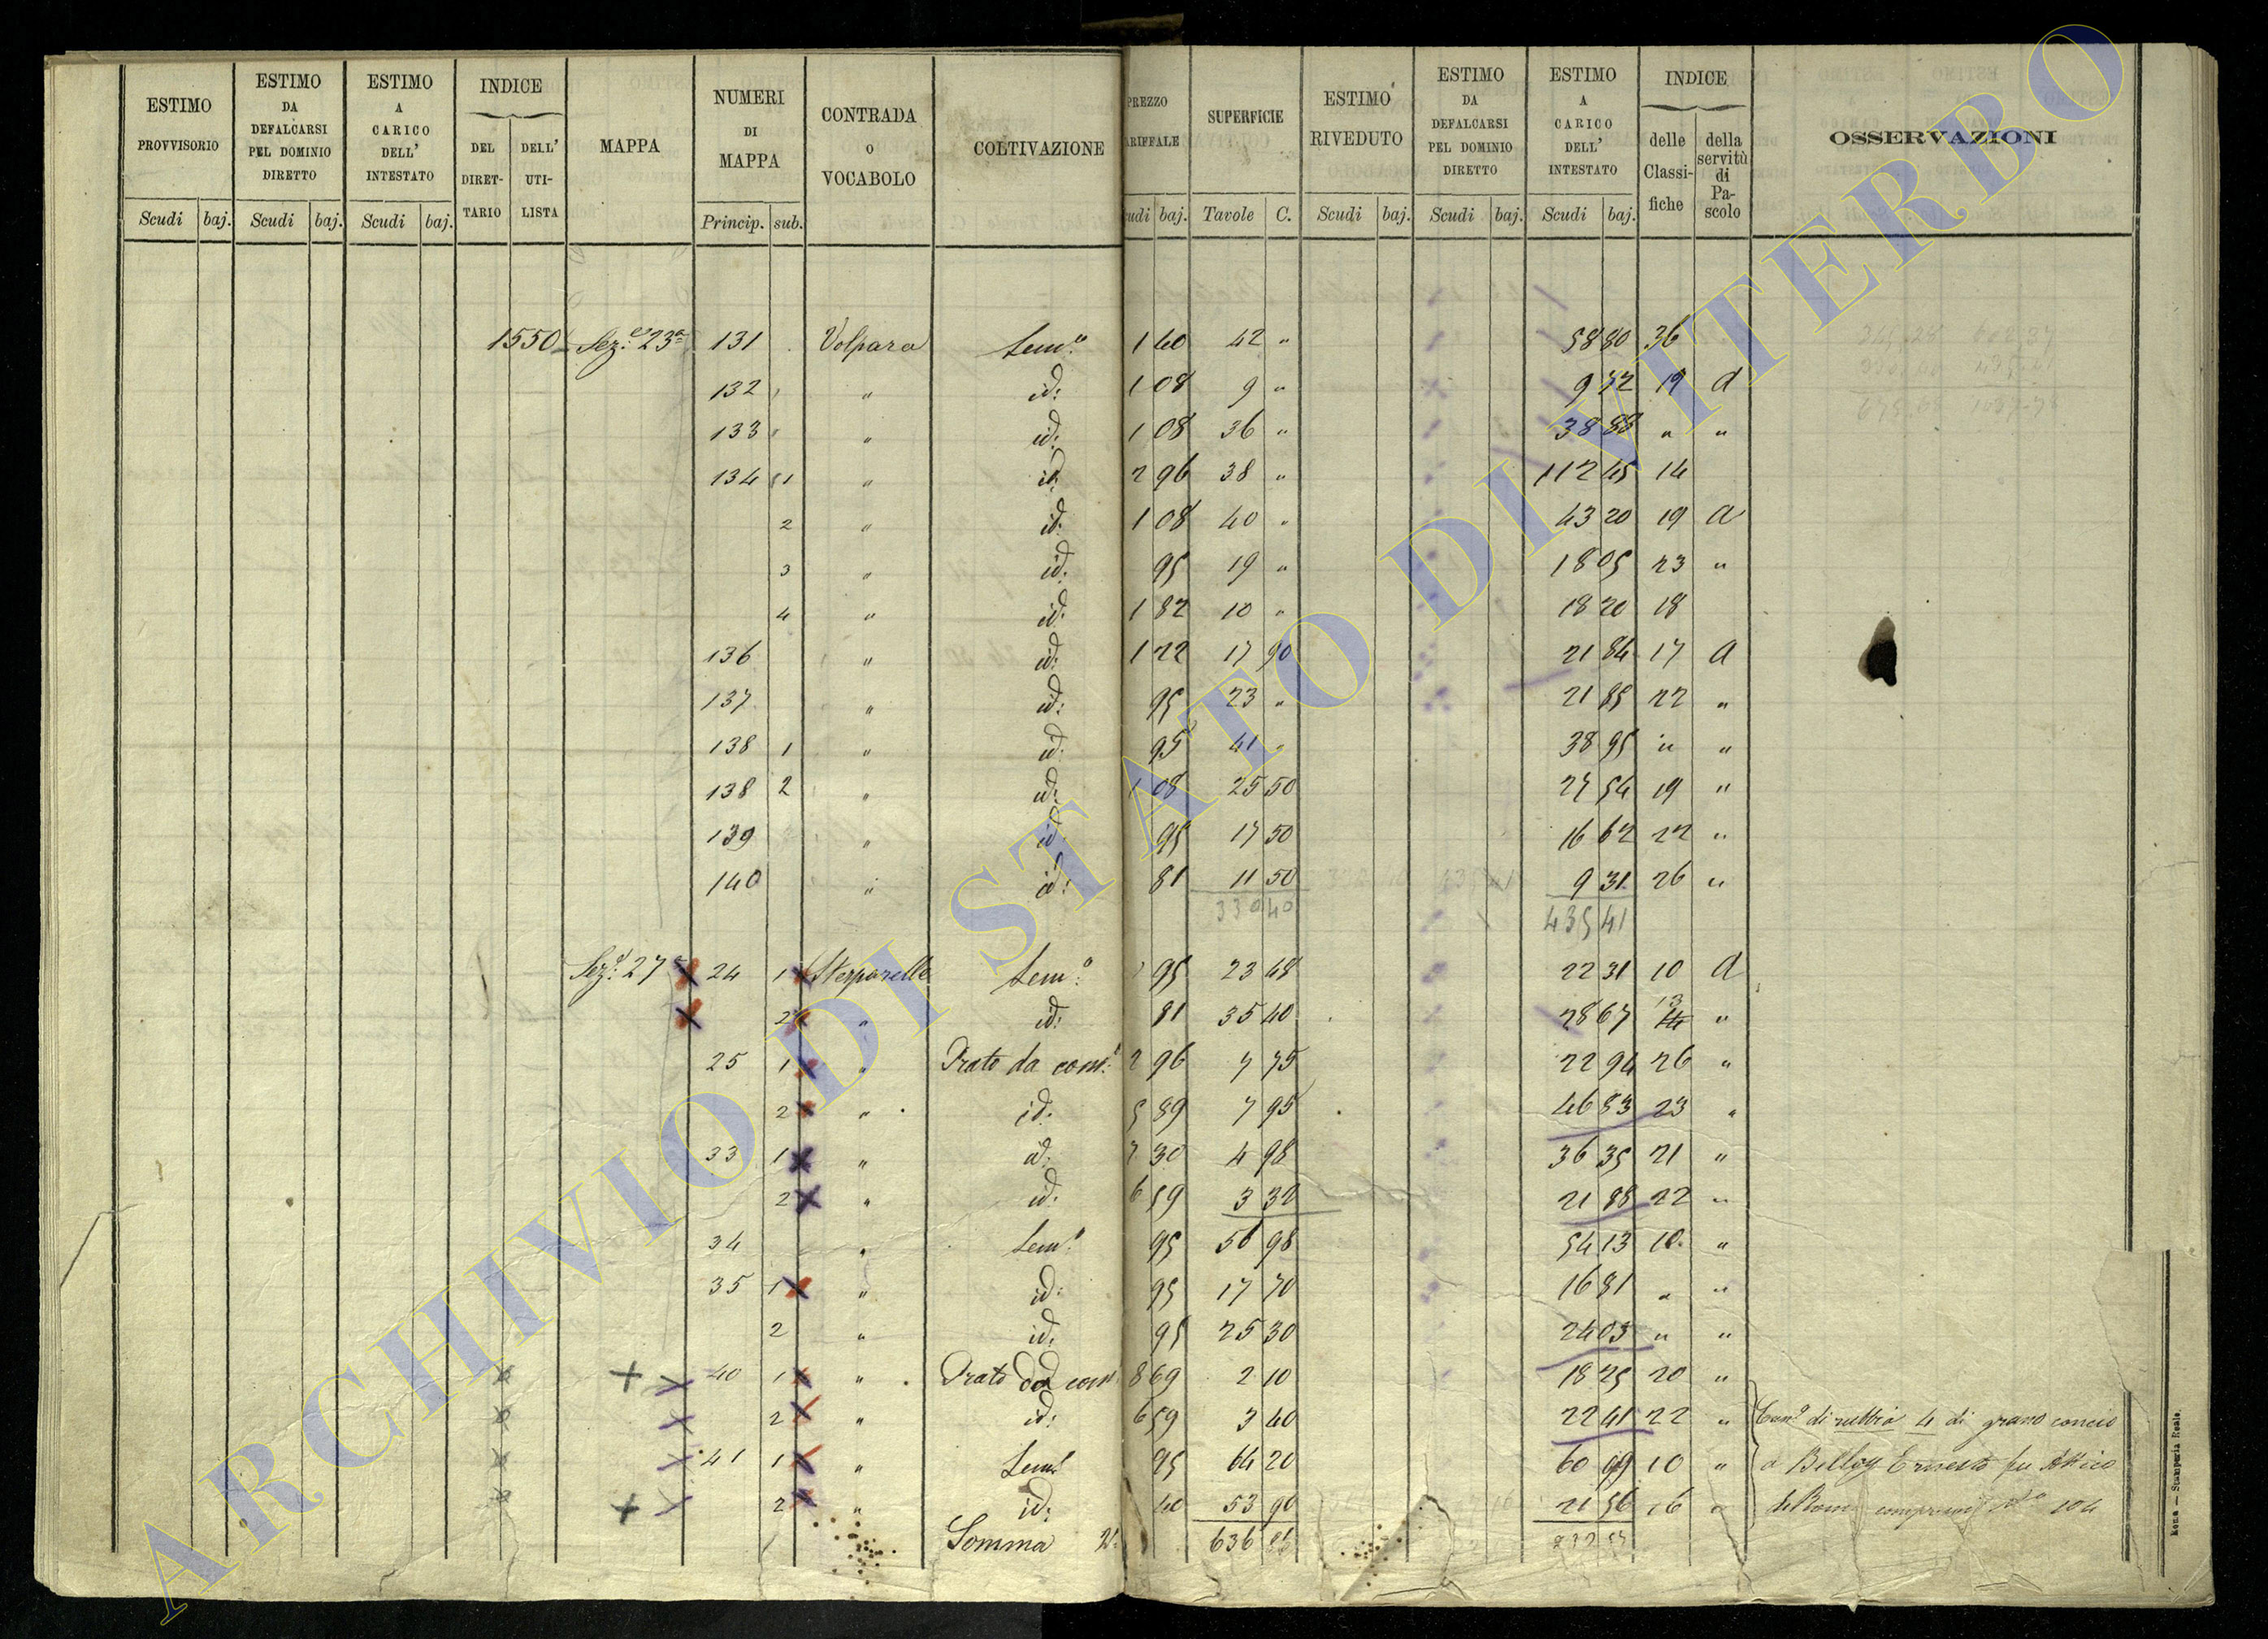 ESTIMO PROVVISORIO
ESTIMO DA DEFALCARSI PEL DOMINIO DIRETTO
ESTIMO A CARICO DELL' INTESTATO
INDICE
DEL DIRET-TARIO
DELL' UTI-LISTA
MAPPA
NUMERI DI MAPPA
CONTRADA O VOCABOLO
COLTIVAZIONE
Scudi baj. Scudi baj. Scudi baj. Princip. sub.
PREZZO
SUPERFICIE
ESTIMO RIVEDUTO
ESTIMO DA DEFALCARSI PEL DOMINIO DIRETTO
ESTIMO A CARICO DELL' INTESTATO
INDICE
delle Classi-fiche
della servitù di Pa-scolo
OSSERVAZIONI
baj. Tavole C. Scudi baj. Scudi baj. Scudi baj.
1550 Sez.e 23a 131 Volpara Sem.o 1 40 42 " 58 80 36
132 " id: 1 08 9 " 9 72 19 a
133 " id: 1 08 36 " 38 88 " "
134 1 " id: 2 96 38 " 112 45 14
2 " id: 1 08 40 " 43 20 19 a
3 " id: 95 19 " 18 05 23 "
4 " id: 1 82 10 " 18 20 18
136 " id: 1 22 17 90 21 84 17 a
137 " id: 95 23 " 21 85 22 "
138 1 " id: 95 41 " 38 95 " "
138 2 " id: 1 08 25 50 27 54 19 "
139 " id: 95 17 50 16 62 22 "
140 " id: 81 11 50 9 31 26 "
330 40 435 41
Sez.e 27a 24 1 Sterparelle Sem.o 95 23 48 22 31 10 a
2 " id: 81 35 40 28 67 13 "
25 1 " Prato da cons.o 2 96 7 75 22 94 26 "
2 " id: 5 89 7 95 46 83 23 "
33 1 " id: 7 30 4 98 36 35 21 "
2 " id: 6 59 3 32 21 88 22 "
34 " Sem.o 95 56 98 54 13 10 "
35 1 " id: 95 17 70 16 81 " "
2 " id: 95 25 30 24 03 " "
40 1 " Prato da cons. 8 69 2 10 18 25 20 "
2 " id: 6 59 3 40 22 41 22 " di rubbia 4 di grano concio
41 1 " Sem.o 95 64 20 60 99 10 " a Belloy Ernesto fu Attico
2 " id: 40 53 90 21 56 16 " 104
Somma 636 86
Roma — Stamperia Reale.
ARCHIVIO DI STATO DI VITERBO